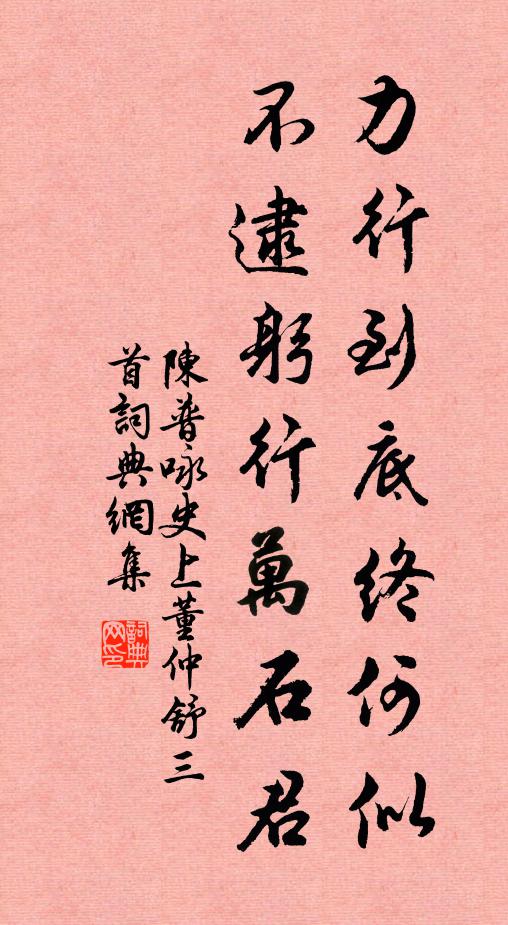 力行到底終何似
不逮躬行萬石君
陳普咏史上董仲舒三
首詞典網集
詞典
网印